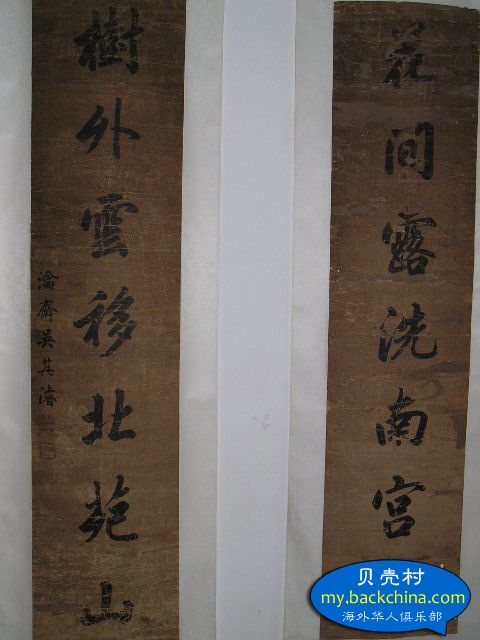 花間露洗南宮
樹外雲移北苑山
瀹齋吳其濬
贝壳村
my.backchina.com
海外华人俱乐部